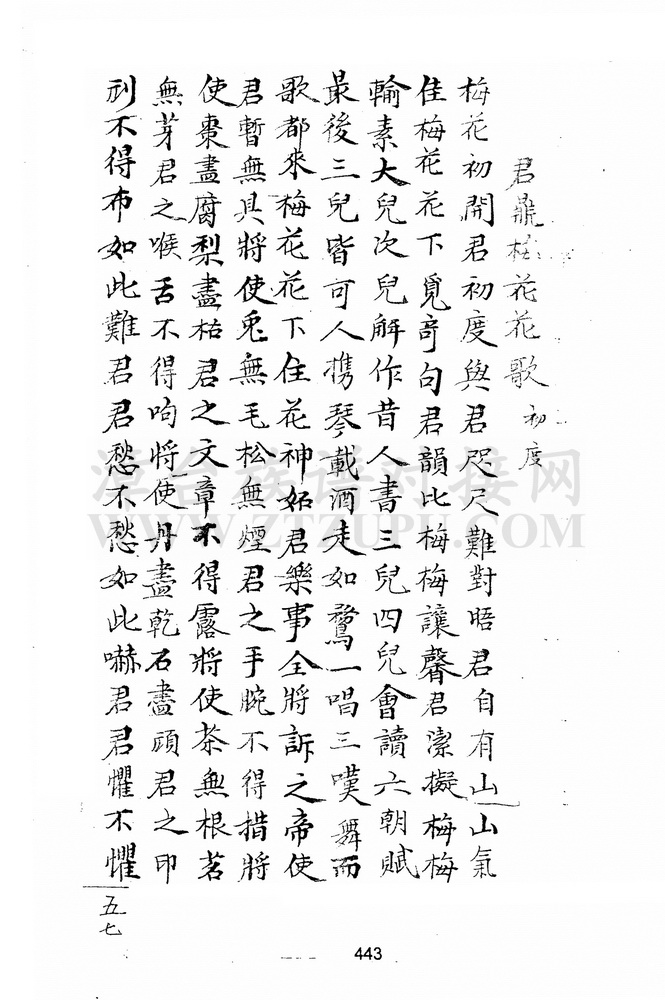 君鼎梅花花歌 初度
梅花初開君初度與君咫尺難對晤君自有山山氣
佳梅花花下覓奇句君韻比梅梅讓馨君潔擬梅梅
輸素大兒次兒解作昔人書三兒四兒會讀六朝賦
最後三兒皆可人携琴載酒走如鶩一唱三嘆舞而
歌都來梅花花下住花神妬君樂事全將訴之帝使
君暫無具將使兎無毛松無煙君之手腕不得措將
使棗盡腐梨盡枯君之文章不得露將使茶無根茗
無芽君之喉舌不得呴將使丹盡乾石盡頑君之印
刓不得布如此難君君愁不愁如此嚇君君懼不懼
五七
443
源台族谱对接网
WWW.ZTZUPU.COM